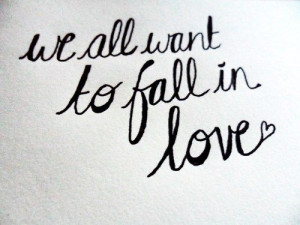 we all want
to fall in
love